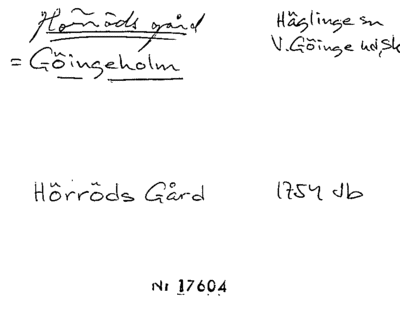 Horröds gård
= Göingeholm
Häglinge sn
V. Göinge hd, Sk
Hörröds Gård 1754 db
Nr 17604